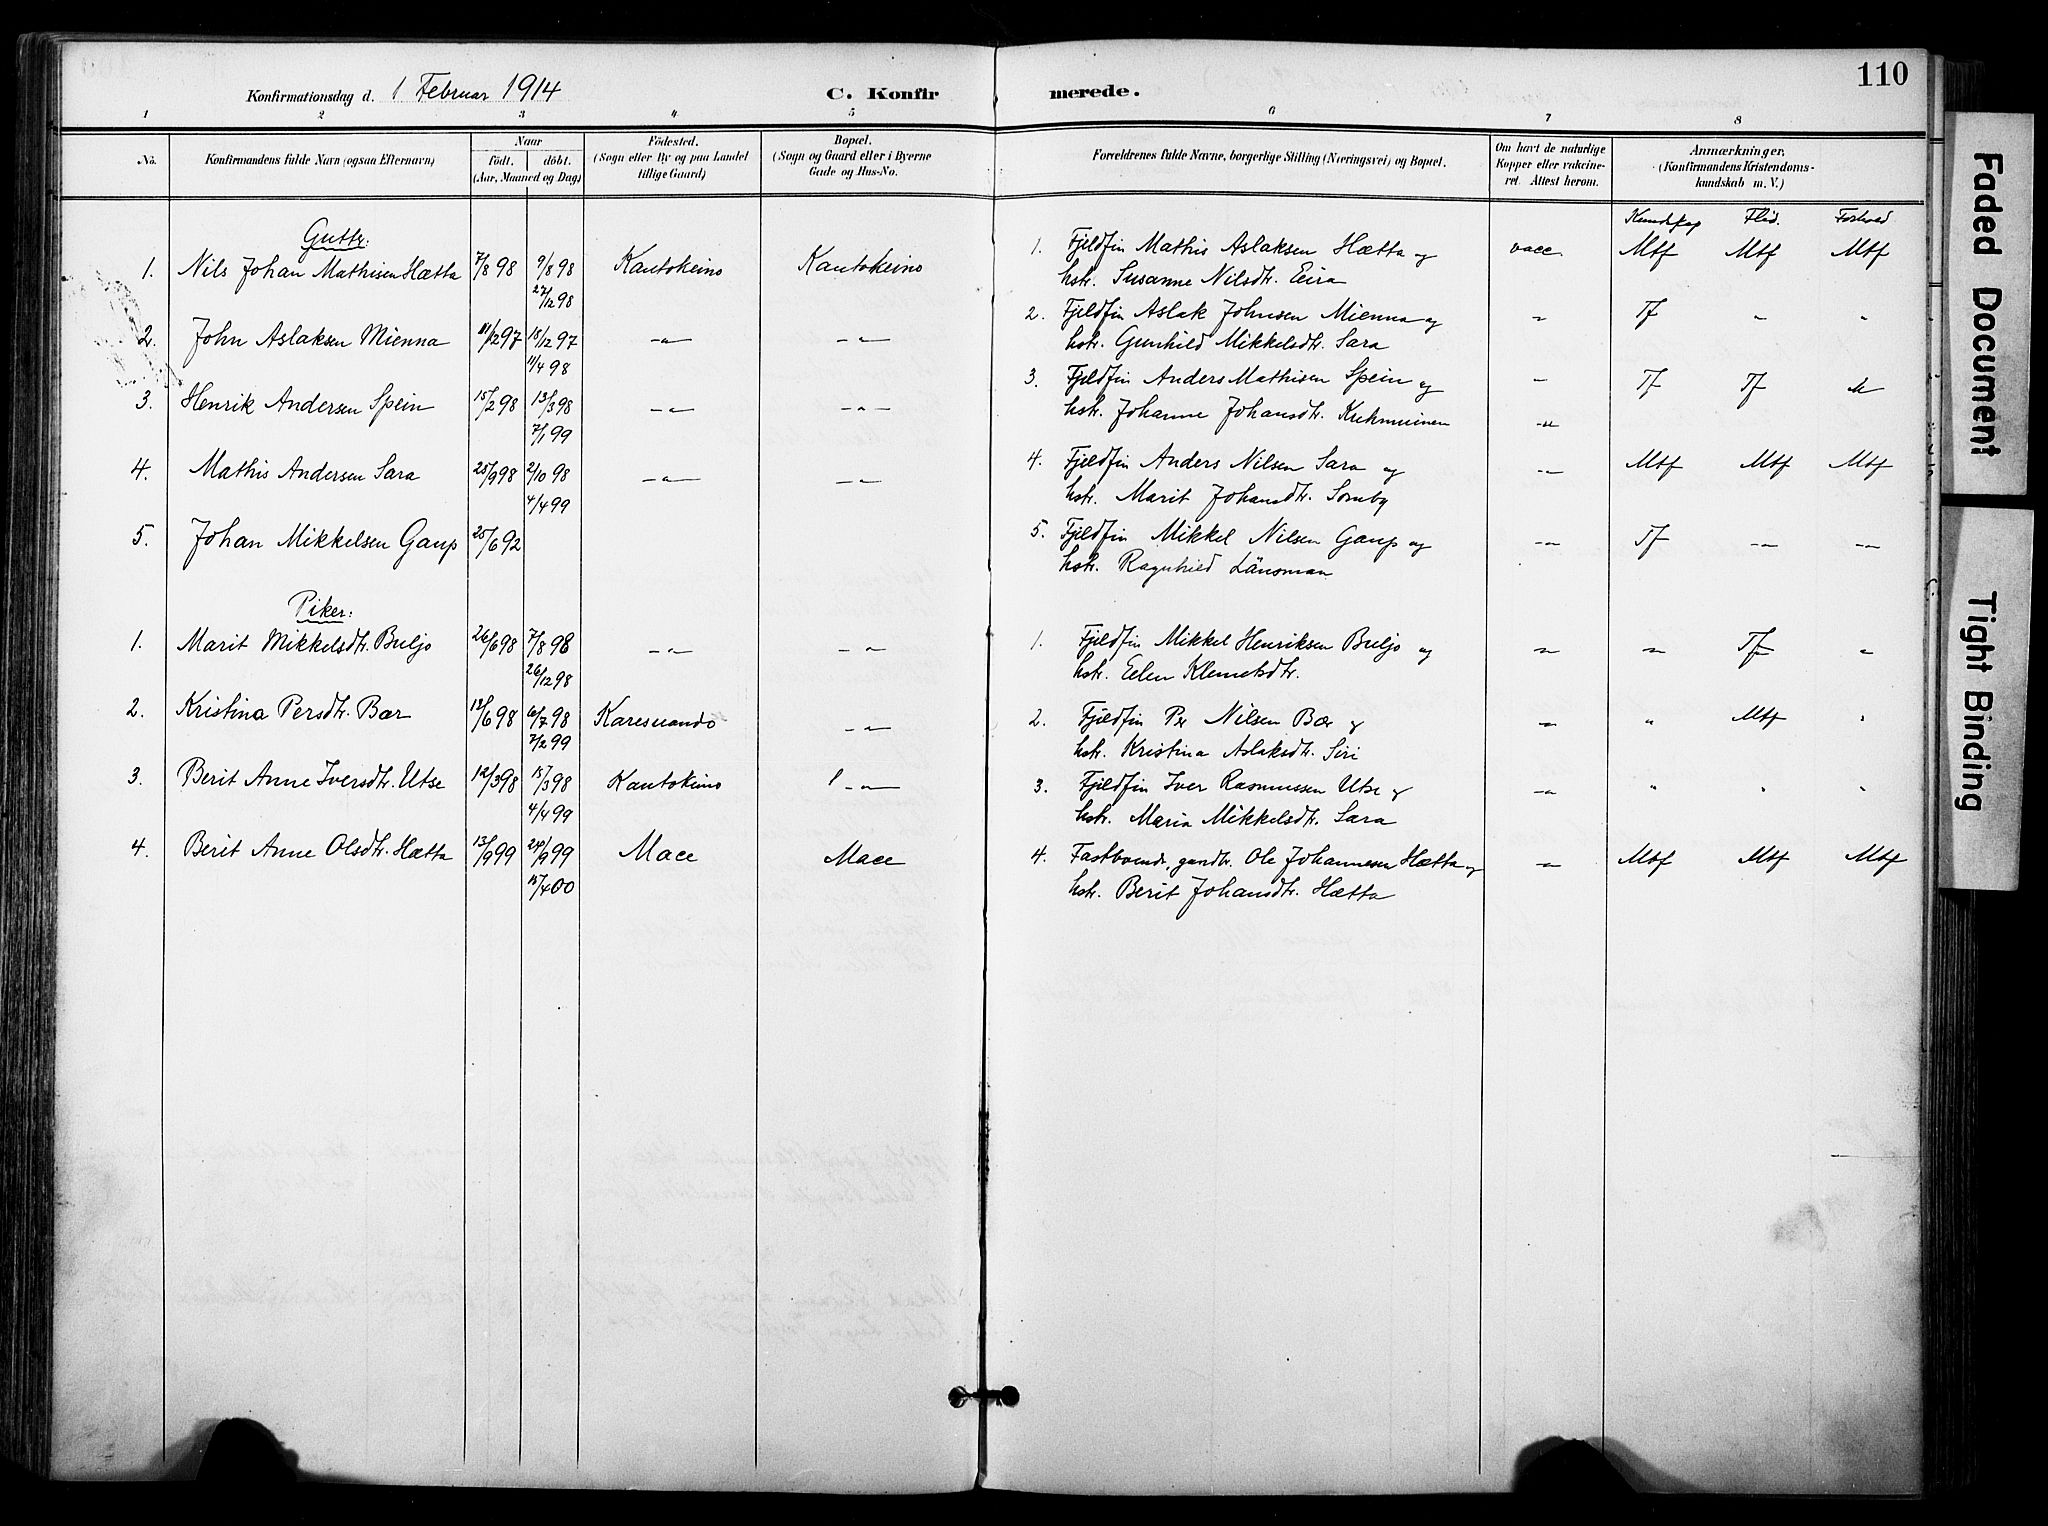 110
Konfirmationsdag d. 1 Februar 1914 C. Konfirmerede.
1 2 3 4 5 6 7 8
No. Konfirmandens fulde Navn (ogsaa Efternavn) Naar födt. döbt. (Aar, Maaned og Dag) Födested. (Sogn eller By og paa Landet tillige Gaard) Bopæl. (Sogn og Gaard eller i Byerne Gade og Hus-No. Forældrenes fulde Navne, borgerlige Stilling (Næringsvei) og Bopæl. Om havt de naturlige Kopper eller vakcineret. Attest herom. Anmærkninger, (Konfirmandens Kristendomskundskab m. V.)
Kundskap Flid. Forhold
Gutter:
1. Nils Johan Mathisen Hætta 7/8 98 9/8 98 Kautokeino Kautokeino 1. Fjeldfin Mathis Aslaksen Hætta og vacc. Mtf Mtf Mtf
27/12 98 hstr. Susanne Nilsdtr. Eira
2. John Aslaksen Mienna 11/12 97 15/12 97 -"- -"- 2. Fjeldfin Aslak Johnsen Mienna og " Tf " "
11/4 98 hstr. Gunhild Mikkelsdtr. Sara
3. Henrik Andersen Spein 15/2 98 13/3 98 -"- -"- 3. Fjeldfin Anders Mathisen Spein og - Tf Tf
7/1 99 hstr. Johanne Johansdtr. -"-
4. Mathis Andersen Sara 25/9 98 2/10 98 -"- -"- 4. Fjeldfin Anders Nilsen Sara og -"- Mtf Mtf Mtf
4/4 99 hstr. Marit Johansdtr. Somby
5. Johan Mikkelsen Gaup 25/6 92 5. Fjeldfin Mikkel Nilsen Gaup og -"- Tf -"- -"-
hstr. Ragnhild Länsman
Piker:
1. Marit Mikkelsdtr. Buljo 26/6 98 7/8 98 -"- -"- 1. Fjeldfin Mikkel Henriksen Buljo og " " Tf "
26/12 98 hstr. Elen Klemetsdtr.
2. Kristina Persdtr. Bær 12/6 98 6/7 98 Karesuando -"- 2. Fjeldfin Per Nilsen Bær og " " Mtf "
7/2 99 hstr. Kristina Aslaksdtr. Siri
3. Berit Anne Iversdtr. Utse 12/3 98 15/3 98 Kautokeino -"- 3. Fjeldfin Iver Rasmussen Utse og -"- " " "
4/4 99 hstr. Maria Mikkelsdtr. Sara
4. Berit Anne Olsdtr. Hætta 13/9 99 24/9 99 Mace Mace 4. Fastboende, gaardbr. Ole Johannesen Hætta og " Mtf Mtf Mtf
15/4 00 hstr. Berit Johansdtr. Hætta
Faded Document
Tight Binding